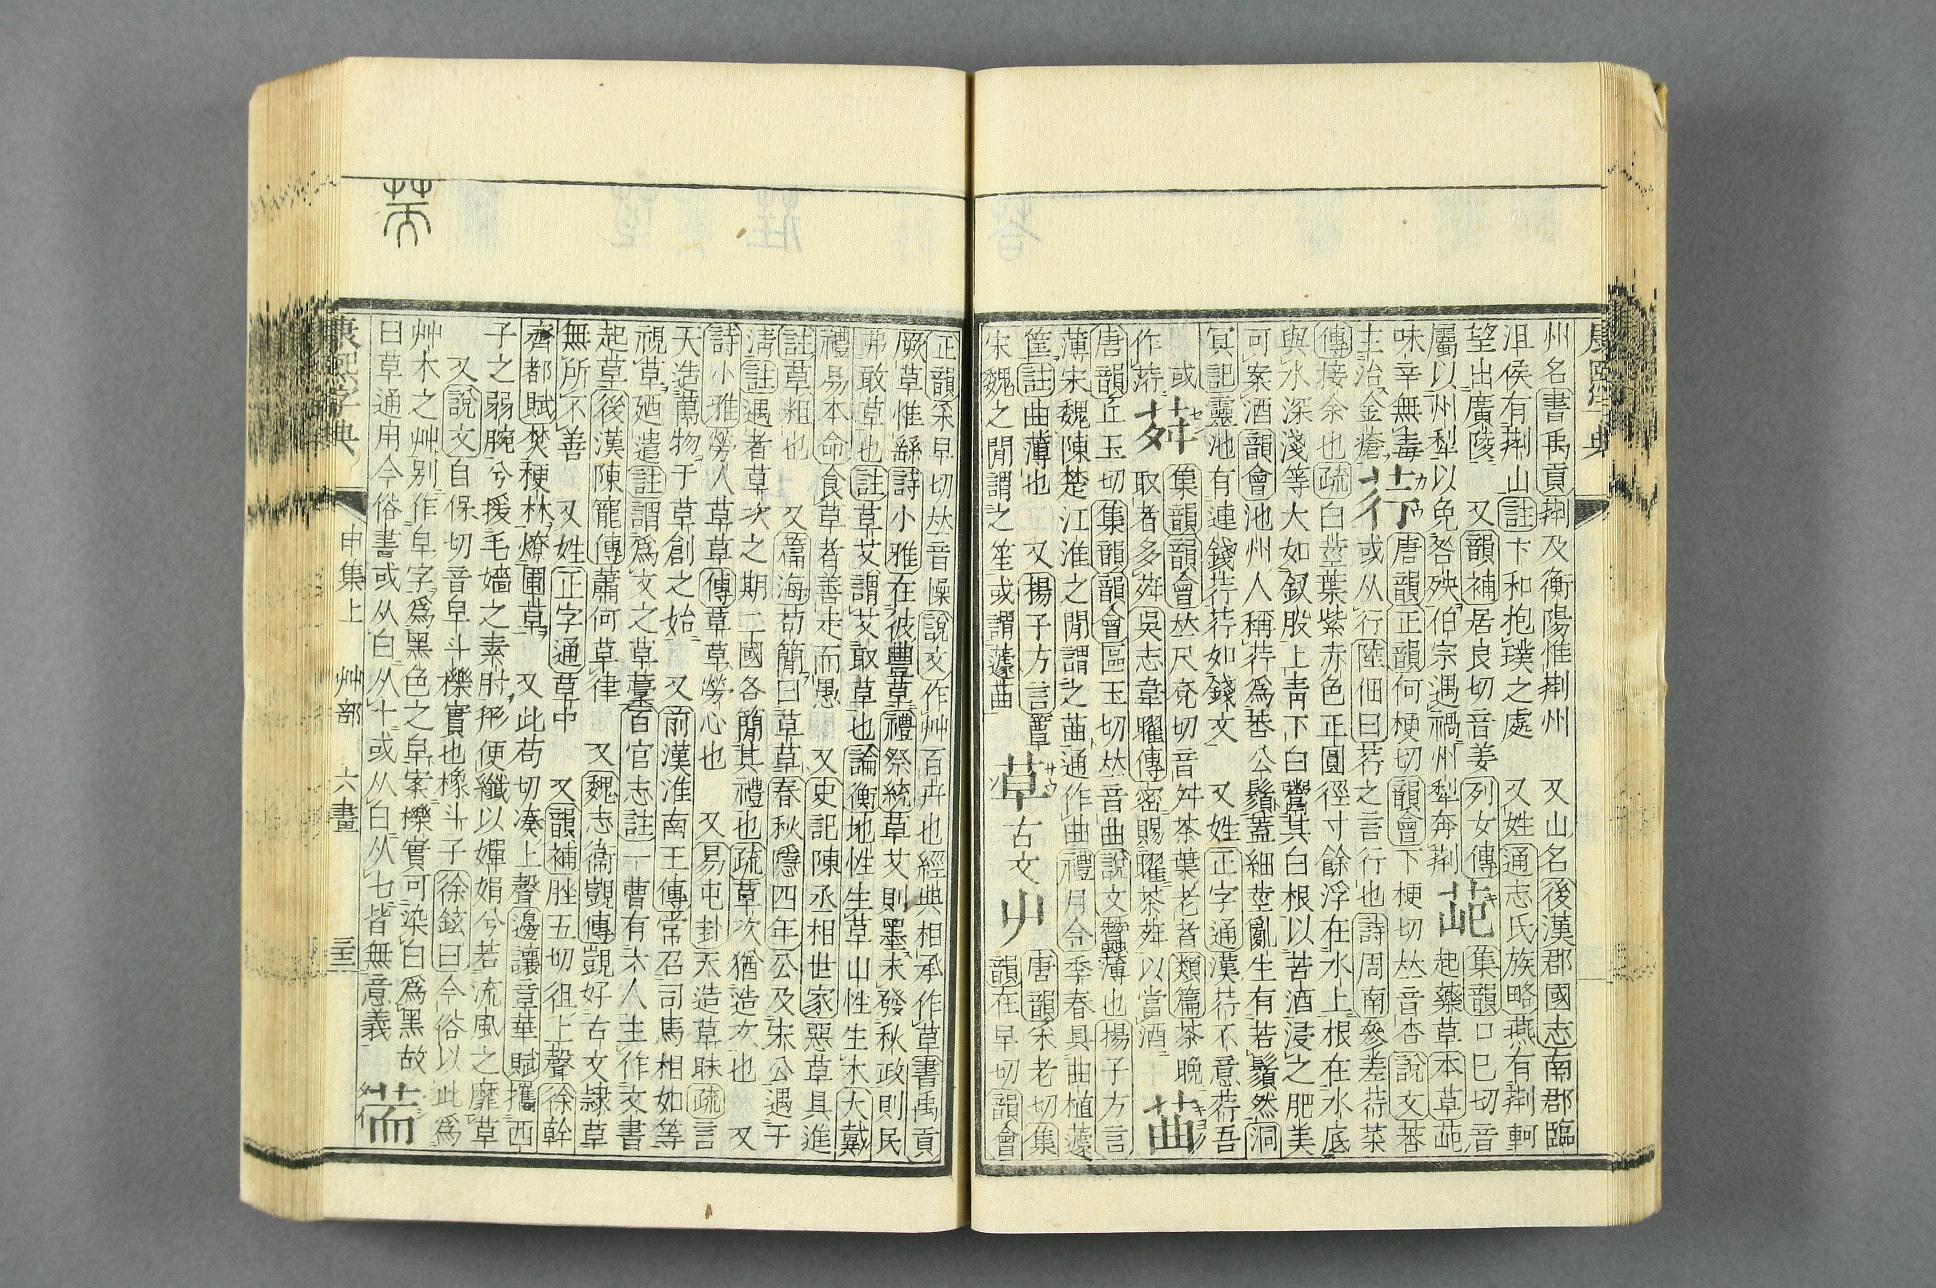 州名書禹貢荆及衡陽惟荆州　又山名後漢郡國志南郡臨
沮侯有荆山註卞和抱璞之處　又姓通志氏族略燕有荆軻
望出廣陵　又韻補居良切音姜列女傳
屬以州犁以免咎殃伯宗遇禍州犁奔荆芑集韻口巳切音
起藥草本草芑
味辛無毒
主治金瘡荇唐韻正韻何梗切韻會下梗切𠀤音杏說文莕
或从行陸佃曰荇之言行也詩周南參差荇菜
傳接余也疏白莖葉紫赤色正圓徑寸餘浮在水上根在水底
與水深淺等大如釵股上靑下白鬻其白根以苦酒浸之肥美
可案酒韻會池州人稱荇爲莕公鬚蓋細莖亂生有若鬚然洞
冥記靈池有連錢荇荇如錢文　又姓正字通漢荇不意荇吾
或
作莕荈集韻韻會𠀤尺兗切音舛茶葉老者類篇茶晚
取者多荈吳志韋曜傳密賜曜茶荈以當酒茁
唐韻丘玉切集韻韻會區玉切𠀤音曲說文蠶薄也揚子方言
薄宋魏陳楚江淮之閒謂之茁通作曲禮月令季春具曲植籧
筐註曲薄也　又揚子方言簟
宋魏之閒謂之笙或謂籧曲草古文屮唐韻采老切集
韻在早切韻會
正韻采早切𠀤音懆說文作艸百卉也經典相承作草書禹貢
厥草惟繇詩小雅在彼豐草禮祭統草艾則墨未發秋政則民
弗敢草也註草艾謂艾取草也論衡地性生草山性生木大戴
禮易本命食草者善走而愚　又史記陳丞相世家惡草具進
註草粗也　又篇海苟簡曰草草春秋隱四年公及宋公遇于
淸註遇者草次之期二國各簡其禮也疏草次猶造次也　又
詩小雅勞人草草傳草草勞心也　又易屯卦天造草昧疏言
天造萬物于草創之始　又前漢淮南王傳常召司馬相如等
視草廼遣註謂爲文之草藁百官志註一曹有六人主作文書
起草後漢陳寵傳蕭何草律　又魏志衞覬傳覬好古文隷草
無所不善　又姓正字通草中　又韻補脞五切徂上聲徐幹
齊都賦焚梗林燎圃草　又此苟切湊上聲邊讓章華賦攜西
子之弱腕兮援毛嬙之素肘形便纖以嬋娟兮若流風之靡草
又說文自保切音皁斗櫟實也橡斗子徐鉉曰今俗以此爲
艸木之艸别作皁字爲黑色之皁案櫟實可染白爲黑故
曰草通用今俗書或从白从十或从白从七皆無意義荋
康熙字典　申集上　艸部　六畫